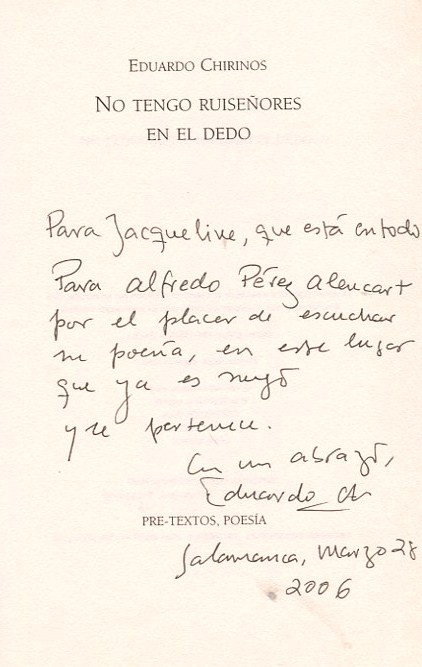 EDUARDO CHIRINOS
NO TENGO RUISEÑORES
EN EL DEDO
Para Jacqueline, que está en todo
Para Alfredo Pérez Alencart
por el placer de escuchar
su poesía, en este lugar
que ya es
y te pertenece.
Con un abrazo,
Eduardo Ch
PRE-TEXTOS, POESÍA
Salamanca, Marzo 28
2006